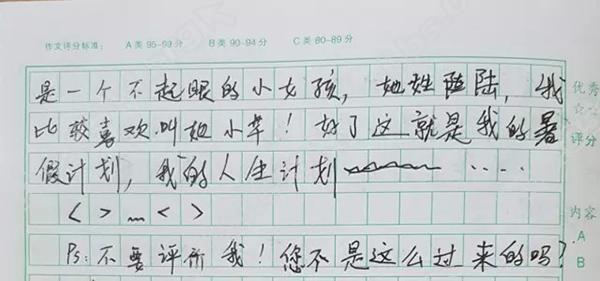 作文评分标准: A类95-99分 B类90-94分 C类80-89分
是一个不起眼的小女孩，她姓陆，我
优秀
比较喜欢叫她小苹！好了这就是我的暑
评分
假计划，我的人生计划 ....
< > … < >
内容
A
Ps：不要评价我！您不是这么过来的吗？
B